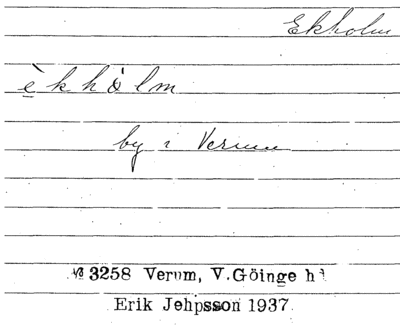 Ekholm
è k h ò l m
by i Verum
№ 3258 Verum, V. Göinge hd
Erik Jepsson 1937.